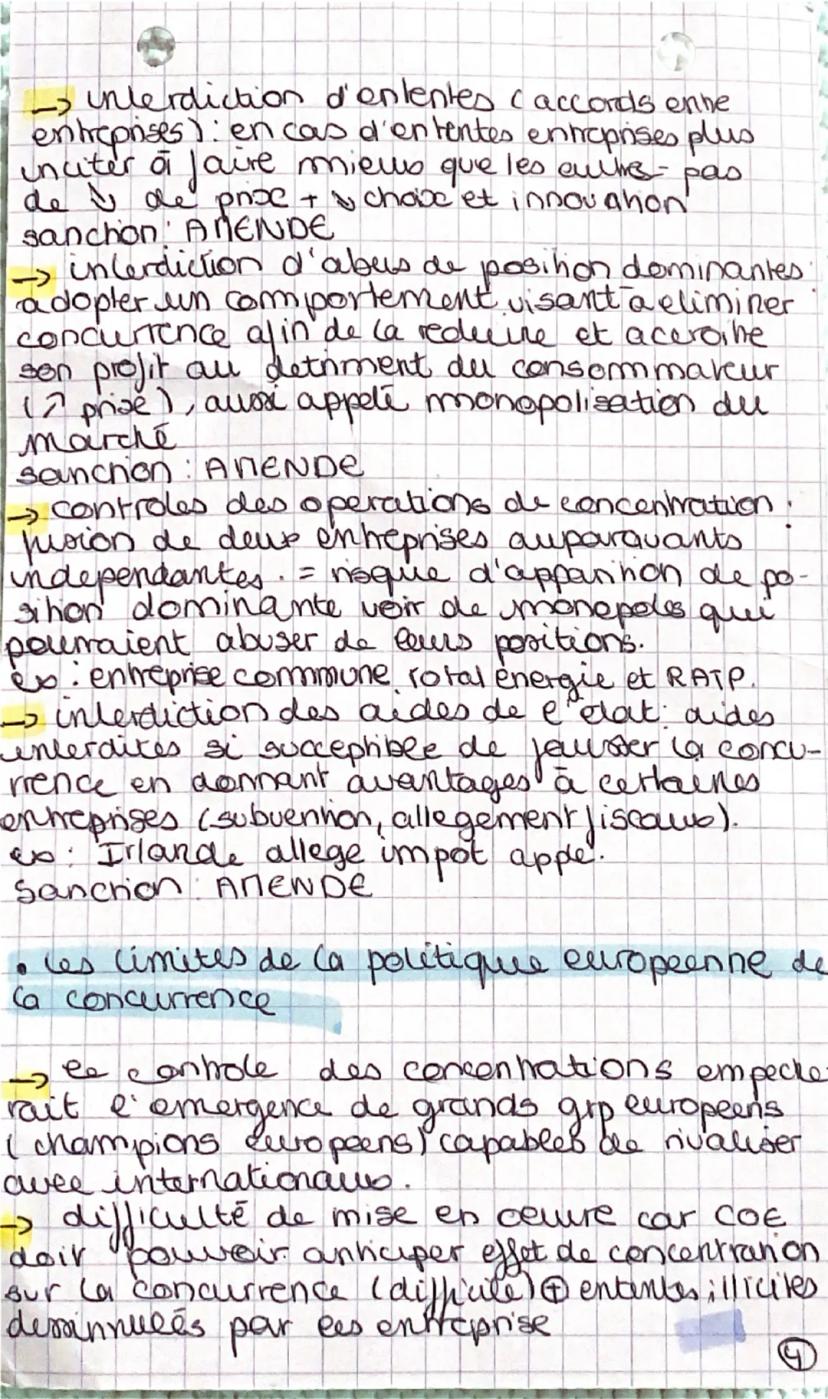 → interdiction d'ententes (accords entre
entreprises) : en cas d'ententes entreprises plus
inciter à faire mieux que les autres = pas
de ↘ de prix + ↘ choix et innovation
sanction : AMENDE
→ interdiction d'abus de position dominantes :
adopter un comportement visant a eliminer
concurrence afin de la reduire et accroitre
son profit au detriment du consommateur
(↗ prix), aussi appelé monopolisation du
marché
sanction : AMENDE
→ controles des operations de concentration :
fusion de deux entreprises auparavants
independantes. = risque d'apparition de po-
sition dominante voir de monopoles qui
pourraient abuser de leurs positions.
ex : entreprise commune total énergie et RATP.
→ interdiction des aides de l'etat : aides
interdites si succeptible de fausser la concu-
rrence en donnant avantages à certaines
entreprises (subvention, allegement fiscaux).
ex : Irlande allege impot apple.
Sanction : AMENDE
• les limites de la politique europeenne de
la concurrence
→ le controle des concentrations empeche-
rait l'emergence de grands grp europeens
(champions europeens) capables de rivaliser
avec internationaux.
→ difficulté de mise en oeuvre car COE
doit pouvoir anticiper effet de concentration
sur la concurrence (difficile) ⊕ ententes illicites
dissimulées par les entreprise
4